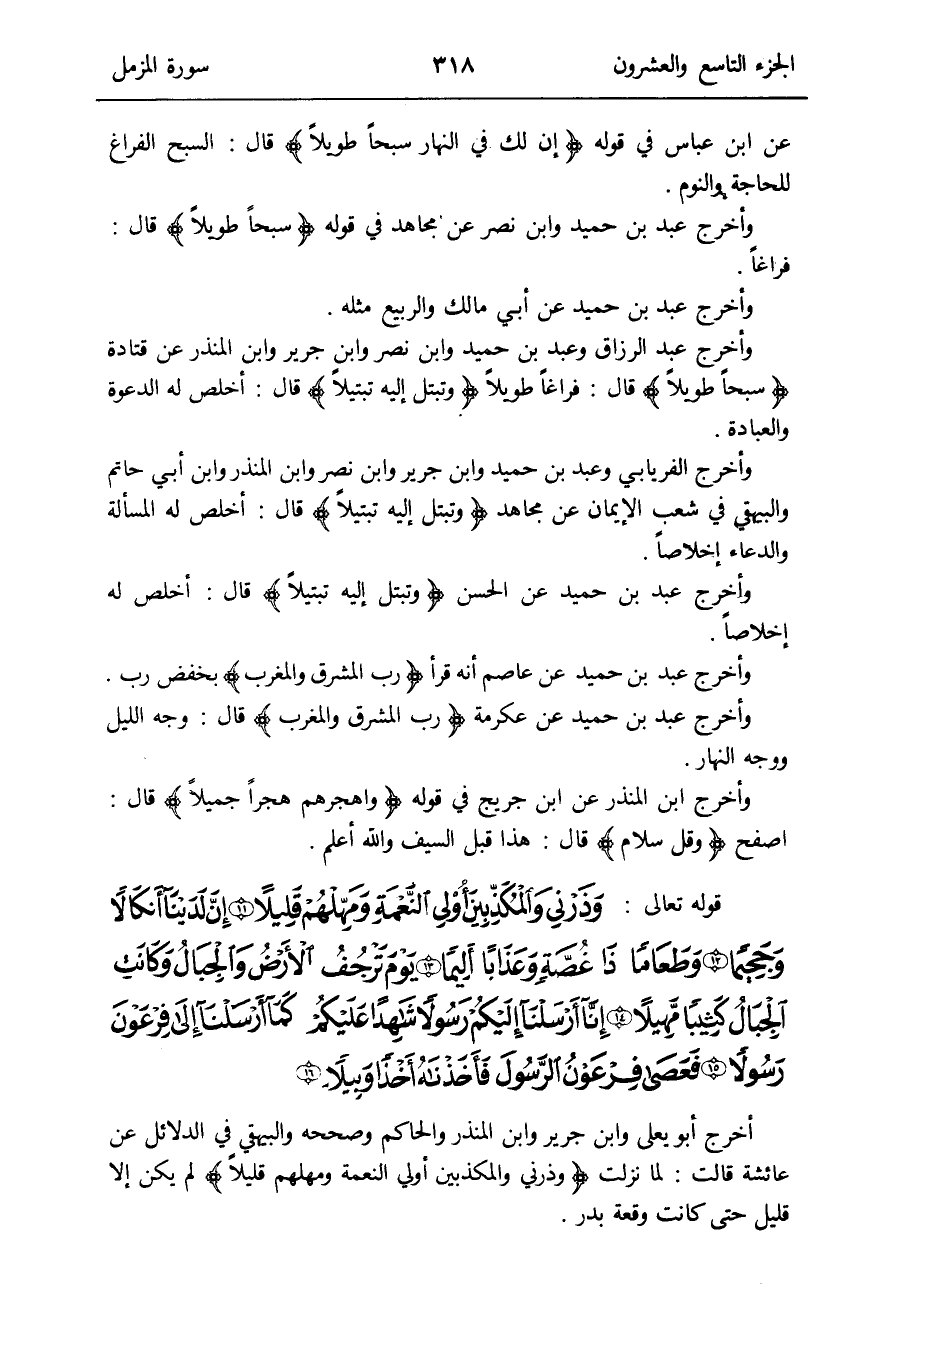 الجزء التاسع والعشرون ٣١٨ سورة المزمل
عن ابن عباس في قوله ﴿ إن لك في النهار سبحاً طويلاً ﴾ قال : السبح الفراغ
للحاجة والنوم .
وأخرج عبد بن حميد وابن نصر عن مجاهد في قوله ﴿ سبحاً طويلاً ﴾ قال :
فراغاً .
وأخرج عبد بن حميد عن أبي مالك والربيع مثله .
وأخرج عبد الرزاق وعبد بن حميد وابن نصر وابن جرير وابن المنذر عن قتادة
﴿ سبحاً طويلاً ﴾ قال : فراغاً طويلاً ﴿ وتبتل إليه تبتيلاً ﴾ قال : أخلص له الدعوة
والعبادة .
وأخرج الفريابي وعبد بن حميد وابن جرير وابن نصر وابن المنذر وابن أبي حاتم
والبيهقي في شعب الإيمان عن مجاهد ﴿ وتبتل إليه تبتيلاً ﴾ قال : أخلص له المسألة
والدعاء إخلاصاً .
وأخرج عبد بن حميد عن الحسن ﴿ وتبتل إليه تبتيلاً ﴾ قال : أخلص له
إخلاصاً .
وأخرج عبد بن حميد عن عاصم أنه قرأ ﴿ رب المشرق والمغرب ﴾ بخفض رب .
وأخرج عبد بن حميد عن عكرمة ﴿ رب المشرق والمغرب ﴾ قال : وجه الليل
ووجه النهار .
وأخرج ابن المنذر عن ابن جريج في قوله ﴿ واهجرهم هجراً جميلاً ﴾ قال :
اصفح ﴿ وقل سلام ﴾ قال : هذا قبل السيف والله أعلم .
قوله تعالى : وَذَرْنِي وَٱلْمُكَذِّبِينَ أُوْلِي ٱلنَّعْمَةِ وَمَهِّلْهُمْ قَلِيلًا ۝١١ إِنَّ لَدَيْنَآ أَنكَالًا
وَجَحِيمًا ۝١٢ وَطَعَامًا ذَا غُصَّةٍ وَعَذَابًا أَلِيمًا ۝١٣ يَوْمَ تَرْجُفُ ٱلْأَرْضُ وَٱلْجِبَالُ وَكَانَتِ
ٱلْجِبَالُ كَثِيبًا مَّهِيلًا ۝١٤ إِنَّآ أَرْسَلْنَآ إِلَيْكُمْ رَسُولًا شَٰهِدًا عَلَيْكُمْ كَمَآ أَرْسَلْنَآ إِلَىٰ فِرْعَوْنَ
رَسُولًا ۝١٥ فَعَصَىٰ فِرْعَوْنُ ٱلرَّسُولَ فَأَخَذْنَٰهُ أَخْذًا وَبِيلًا ۝١٦
أخرج أبو يعلى وابن جرير وابن المنذر والحاكم وصححه والبيهقي في الدلائل عن
عائشة قالت : لما نزلت ﴿ وذرني والمكذبين أولي النعمة ومهلهم قليلاً ﴾ لم يكن إلا
قليل حتى كانت وقعة بدر .